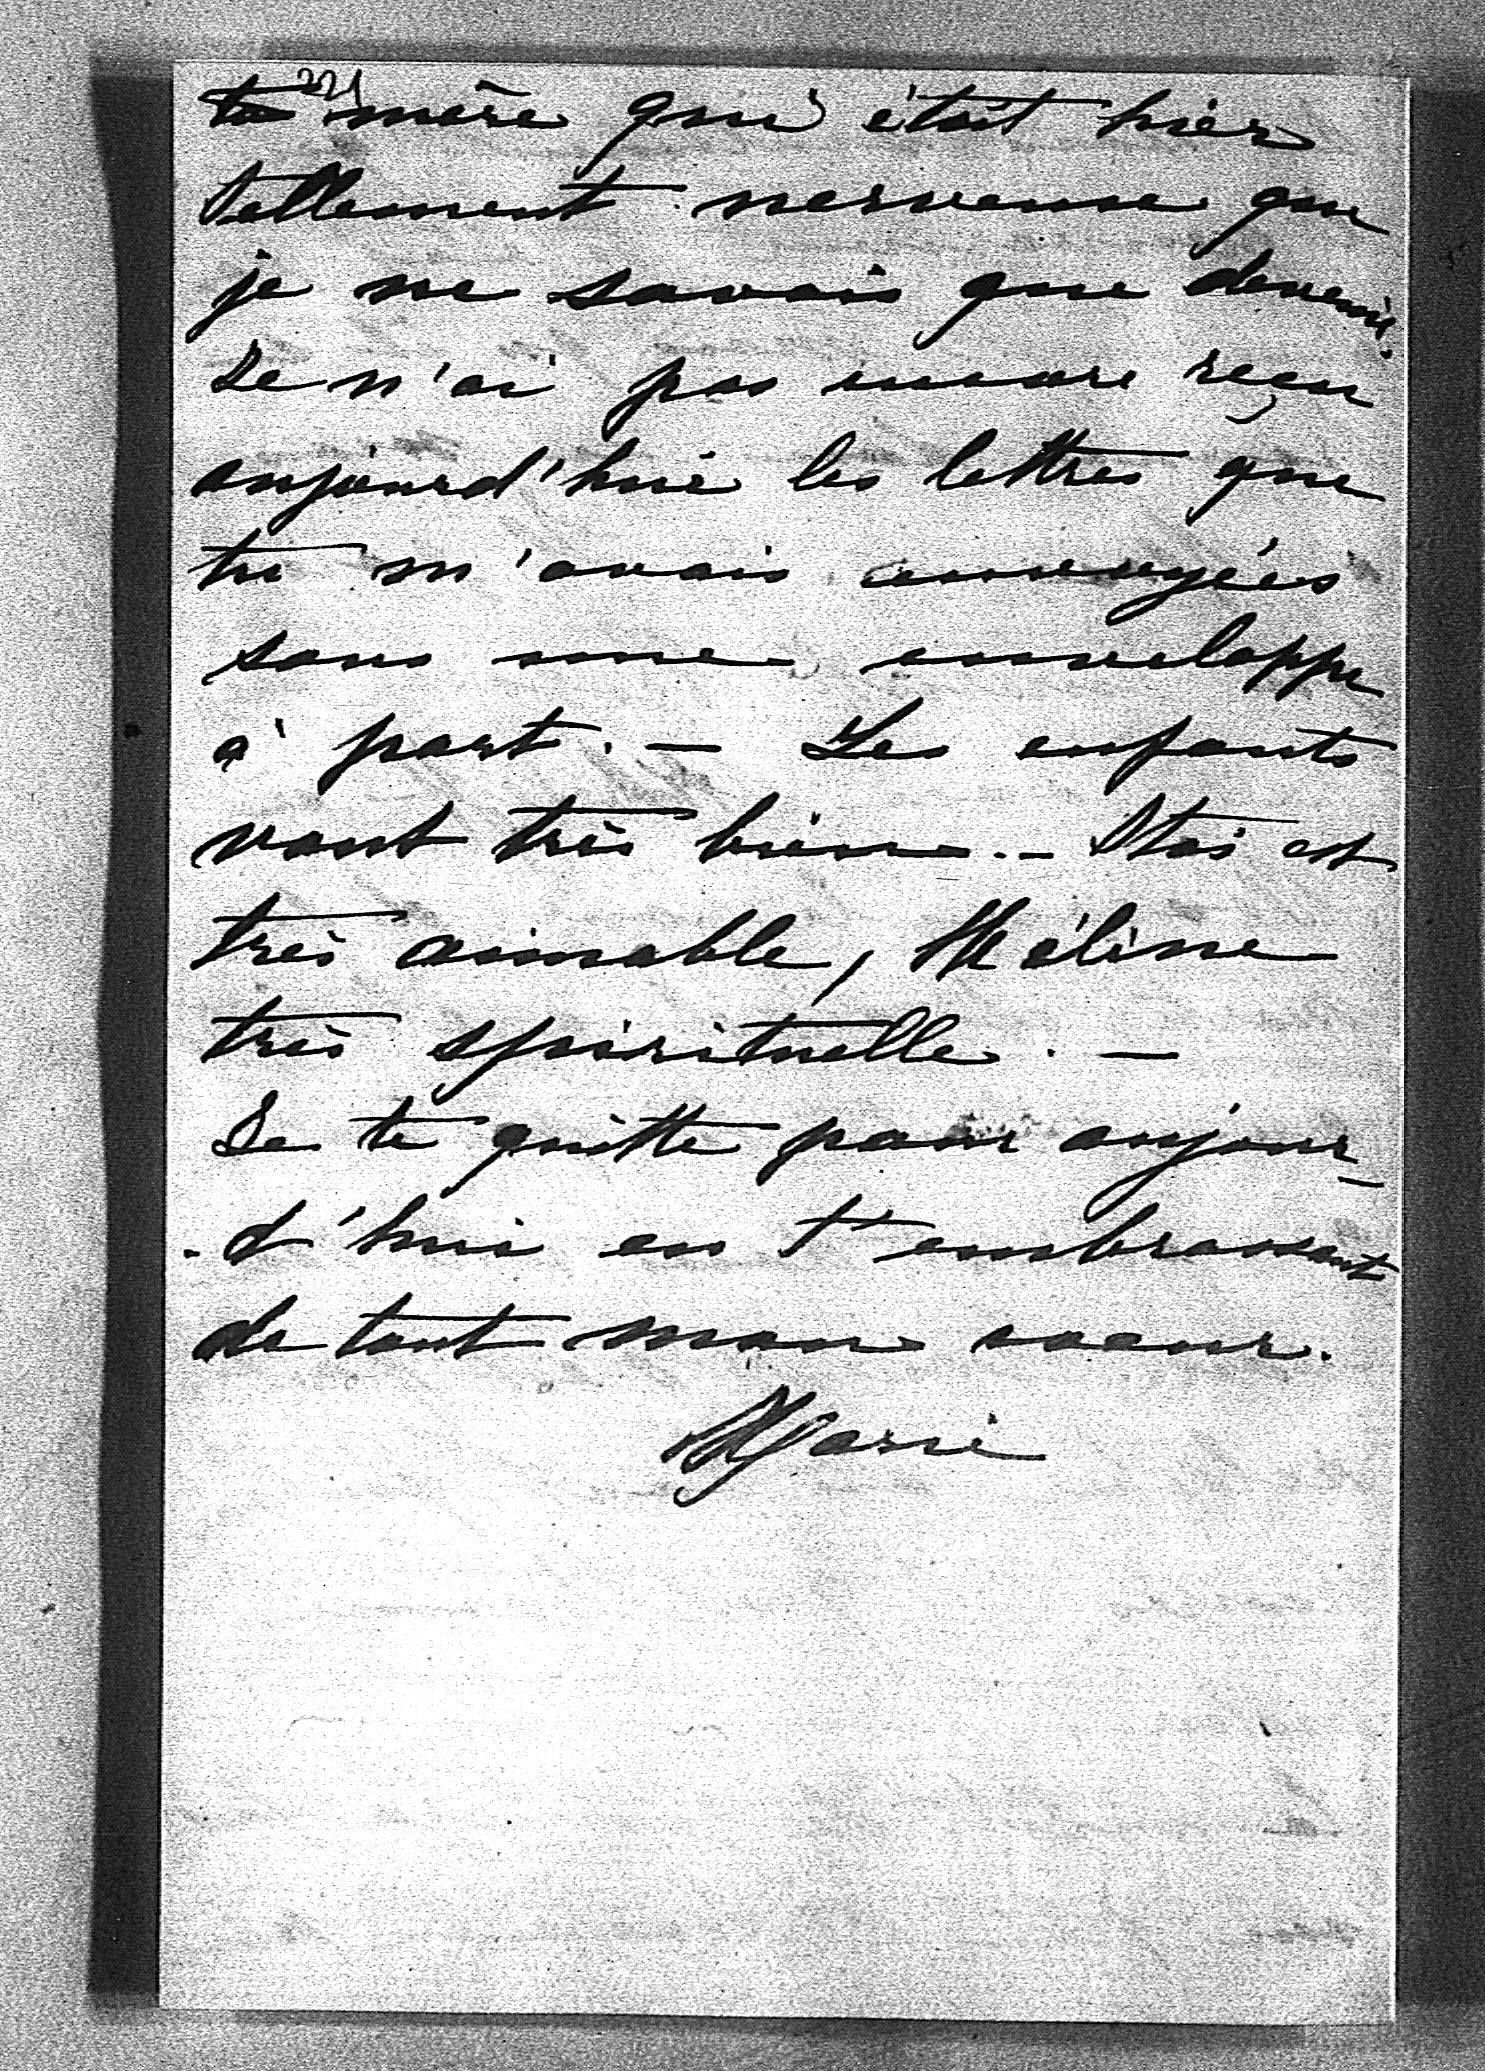 ta mère qui était hier
tellement nerveuse que
je ne savais que devenir.
Je n'ai pas encore reçu
aujourd'hui les lettres que
tu m'avais envoyées
sous une enveloppe
à part. — Les enfants
vont très bien. — Stas est
très aimable, Méline
très spirituelle. —
Je te quitte pour aujour-
-d'hui en t'embrassant
de tout mon coeur.
Marie